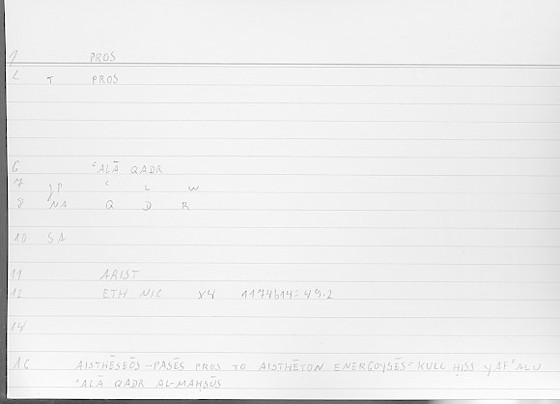 1 PROS
2 T PROS
6 ʿALĀ QADR
7 JP ʿ L W
8 NA Q D R
10 SA
11 ARIST
12 ETH NIC X4 1174b14=49.2
14
16 AISTHĒSEŌS-PASĒS PROS TO AISTHĒTON ENERGOYSĒS=KULL ḤISS YAFʿALU
ʿALĀ QADR AL-MAḤSŪS